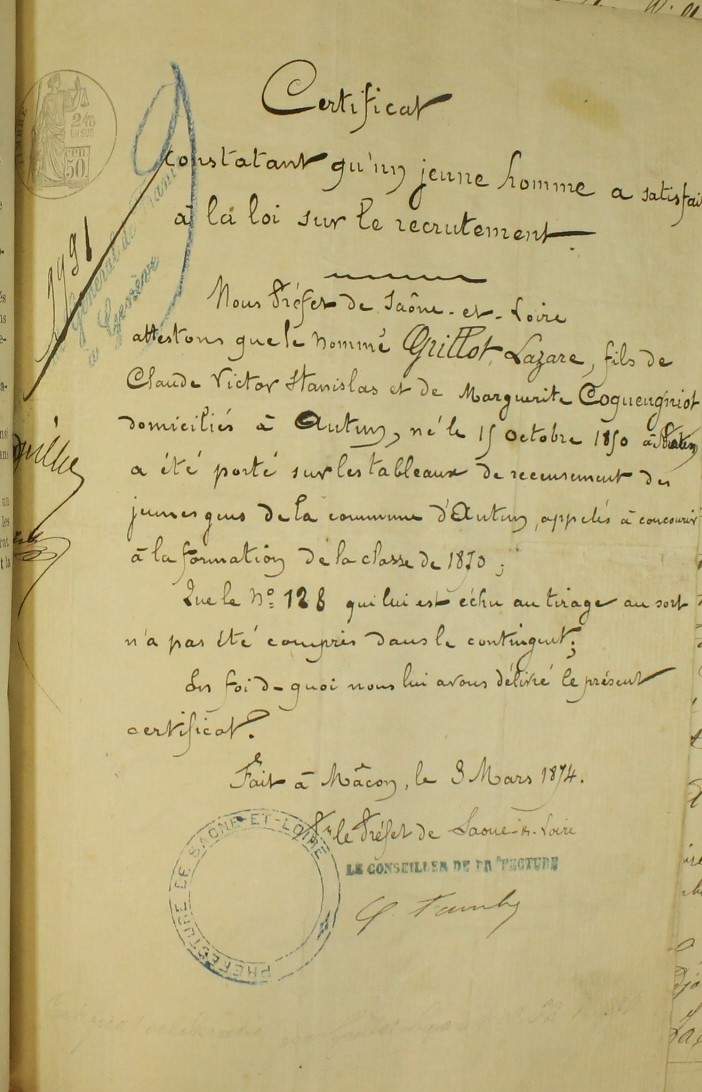 Certificat
constatant qu'un jeune homme a satisfai
à la loi sur le recrutement.
Nous Préfet de Saône-et-Loire
attestons que le nommé Grillot, Lazare, fils de
Claude Victor Stanislas et de Marguerite Cogueugniot
domiciliés à Autun, né le 15 octobre 1850 à Autun
a été porté sur les tableaux de recensement des
jeunes gens de la commune d'Autun, appelés à concourir
à la formation de la classe de 1870;
Que le No. 128 qui lui est échu au tirage au sort
n'a pas été compris dans le contingent;
En foi de quoi nous lui avons délivré le présent
certificat.
Fait à Mâcon, le 3 Mars 1874.
Pr le Préfet de Saône-et-Loire
LE CONSEILLER DE PRÉFECTURE
PRÉFECTURE DE SAONE-ET-LOIRE
1991
50